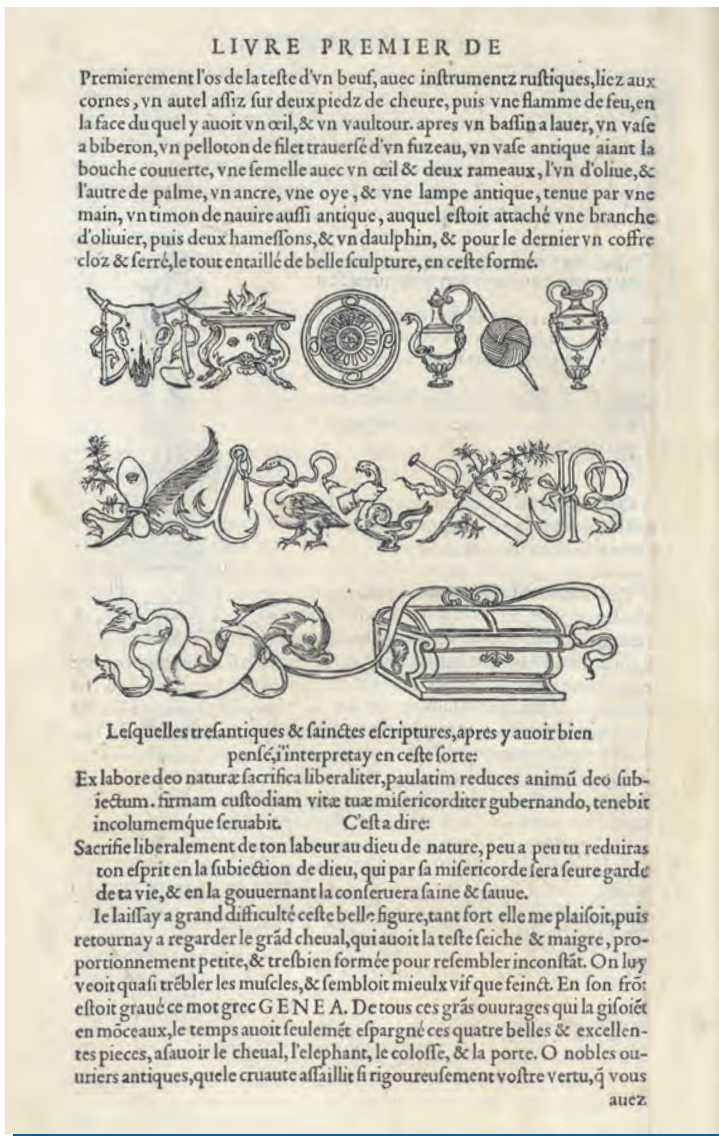 LIVRE PREMIER DE
Premierement l'os de la teſte d'vn beuf, auec inſtrumentz ruſtiques, liez aux
cornes, vn autel aſſiz ſur deux piedz de cheure, puis vne flamme de feu, en
la face du quel y auoit vn œil, & vn vaultour. apres vn baſſin a lauer, vn vaſe
a biberon, vn pelloton de filet trauerſé d'vn fuzeau, vn vaſe antique aiant la
bouche couuerte, vne ſemelle auec vn œil & deux rameaux, l'vn d'oliue, &
l'autre de palme, vn ancre, vne oye, & vne lampe antique, tenue par vne
main, vn timon de nauire auſſi antique, auquel eſtoit attaché vne branche
d'oliuier, puis deux hameſſons, & vn daulphin, & pour le dernier vn coffre
cloz & ferré, le tout entaillé de belle ſculpture, en ceſte formé.
Leſquelles treſantiques & ſainctes eſcriptures, apres y auoir bien
penſé, i'interpretay en ceſte ſorte:
Ex labore deo naturæ ſacrifica liberaliter, paulatim reduces animũ deo ſub-
iectum. firmam cuſtodiam vitæ tuæ miſericorditer gubernando, tenebit
incolumemq́ue ſeruabit. C'eſt a dire:
Sacrifie liberalement de ton labeur au dieu de nature, peu a peu tu reduiras
ton eſprit en la ſubiection de dieu, qui par ſa miſericorde ſera ſeure garde
de ta vie, & en la gouuernant la conſeruera ſaine & ſauue.
Ie laiſſay a grand difficulté ceſte belle figure, tant fort elle me plaiſoit, puis
retournay a regarder le grãd cheual, qui auoit la teſte ſeiche & maigre, pro-
portionnement petite, & treſbien formée pour reſembler inconſtãt. On luy
veoit quaſi trẽbler les muſcles, & ſembloit mieulx vif que feinct. En ſon frõt
eſtoit graué ce mot grec G E N E A. De tous ces grãs ouurages qui la giſoiẽt
en mõceaux, le temps auoit ſeulemẽt eſpargné ces quatre belles & excellen-
tes pieces, aſauoir le cheual, l'elephant, le coloſſe, & la porte. O nobles ou-
uriers antiques, quele cruaute aſſaillit ſi rigoureuſement voſtre vertu, q̃ vous
auez